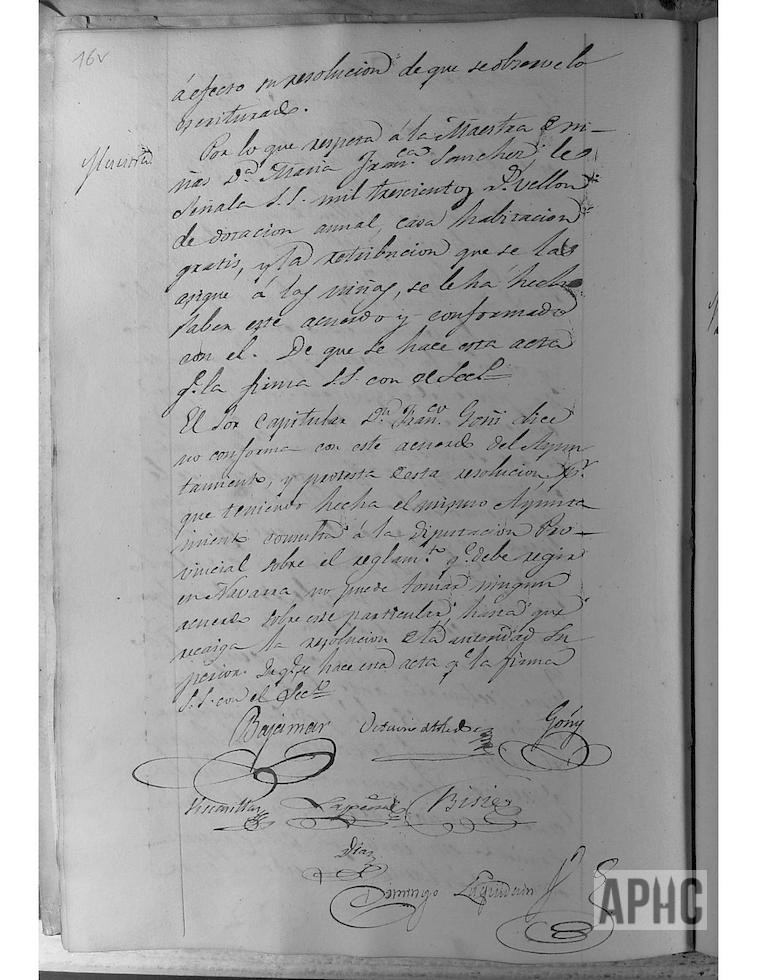 16v
á efecto su resolucion de que se observe lo
escriturado.
Por lo que respeta á la Maestra de ni-
ñas D.ª Maria Fran.ca Sanchez, les
Señala S.S. mil trescientos r.s vellon
de dotacion anual, casa habitacion
gratis, y la retribucion que se las
asigne á las niñas, se le há hecho
saber este acuerdo y conformado
con el. De que se hace esta acta
q.e la firma S.S. con el Secr.o
El Sor Capitular D.n Fran.co Goñi dice
no conforma con este acuerdo del Ayun
tamiento, y protesta de esta resolucion, p.r
que teniendo hecha el mismo Ayunta
miento consulta á la Diputacion Pro-
vincial sobre el reglam.to q.e debe regir
en Navarra no puede tomar ningun
acuerdo sobre este particular hasta que
recaiga la resolucion de la autoridad Su
perior. De q.e se hace esta acta q.e la firma
S.S. con el Secr.o
Bajamar
Goñy
Lapeña
Bisie
Diaz
Domingo
APHC